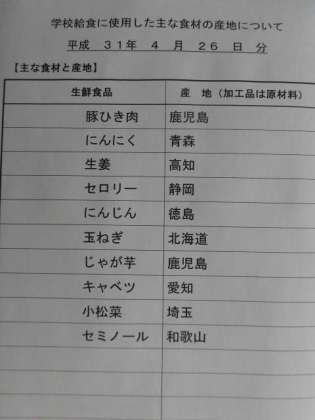 学校給食に使用した主な食材の産地について
平成 31年 4 月 26 日 分
【主な食材と産地】
生鮮食品 産 地（加工品は原材料）
豚ひき肉 鹿児島
にんにく 青森
生姜 高知
セロリー 静岡
にんじん 徳島
玉ねぎ 北海道
じゃが芋 鹿児島
キャベツ 愛知
小松菜 埼玉
セミノール 和歌山